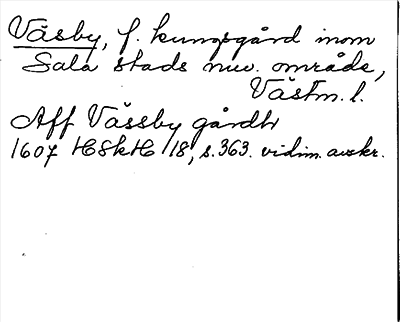 Väsby, f. kungsgård inom
Sala stads nuv. område,
Västm. l.
Aff Vässby gårdh
1607 HSkH 18, s. 363. vidim. avskr.